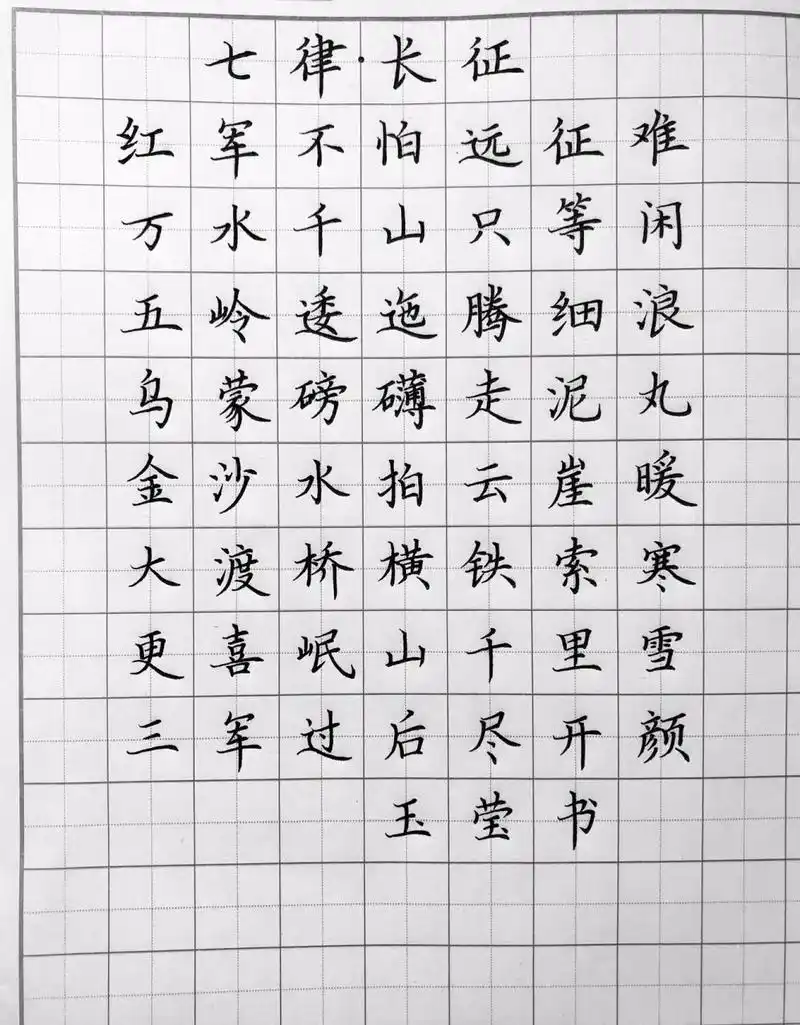 七律·长征
红军不怕远征难
万水千山只等闲
五岭逶迤腾细浪
乌蒙磅礴走泥丸
金沙水拍云崖暖
大渡桥横铁索寒
更喜岷山千里雪
三军过后尽开颜
玉莹书